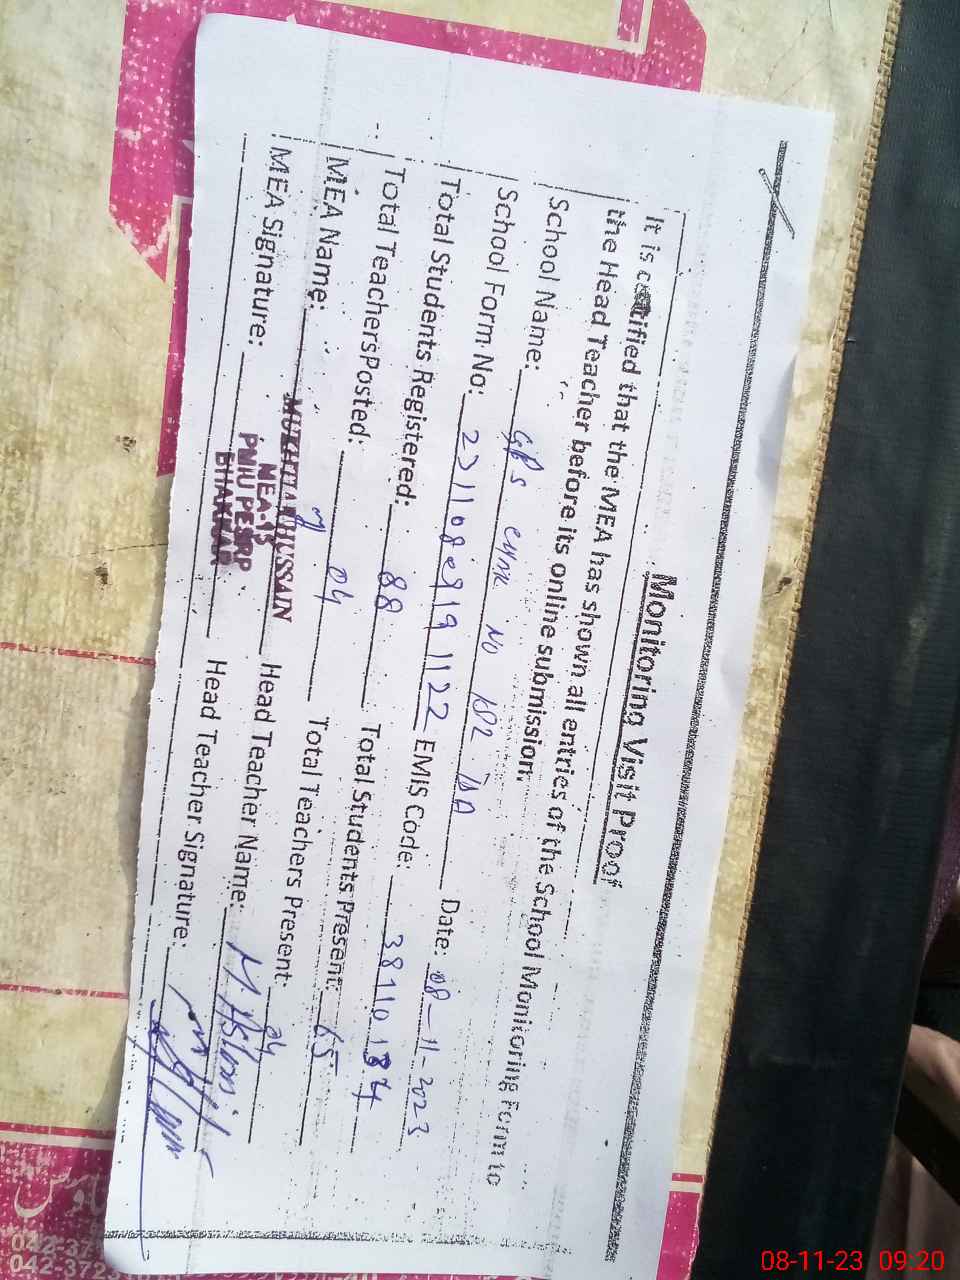 Monitoring Visit Proof
It is certified that the MEA has shown all entries of the School Monitoring Form to
the Head Teacher before its online submission.
School Name: GPS No 102 TDA Date: 08-11-2023
School Form No: EMIS Code: 38110134
Total Students Registered: 88 Total Students Present: 65
Total Teachers Posted: 04 Total Teachers Present: 04
MEA Name: MUKHTIAR HUSSAIN Head Teacher Name: M Aslam
MEA-13
PMIU PESRP
BHAKKAR
MEA Signature: Head Teacher Signature:
042-37
042-3723
08-11-23 09:20